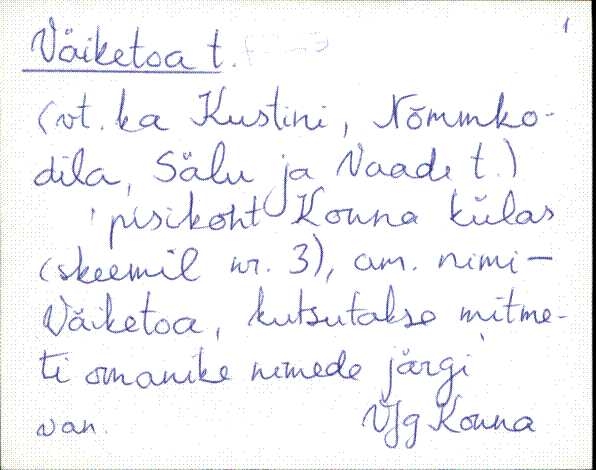 1
Väiketoa t.
(vt. ka Kustini, Nõmmko-
dila, Sälu ja Vaade t.)
pisikoht Konna külas
(skeemil nr. 3), am. nimi -
Väiketoa, kutsutakse mitme-
ti omanike nimede järgi
van. VJg Konna